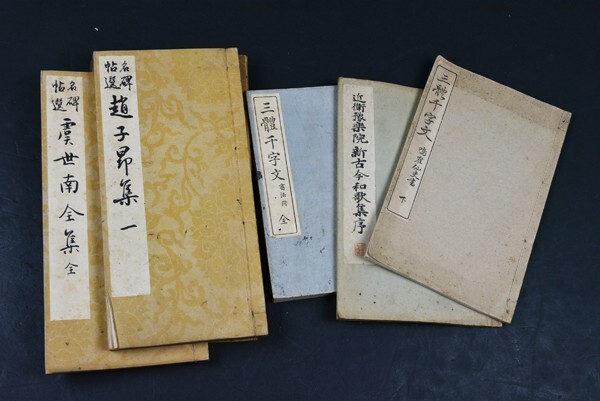 名碑
帖選
虞世南全集 全
名碑
帖選
趙子昂集 一
三體千字文
書法附
全
近衛豫樂院新古今和歌集序
三體千字文
下